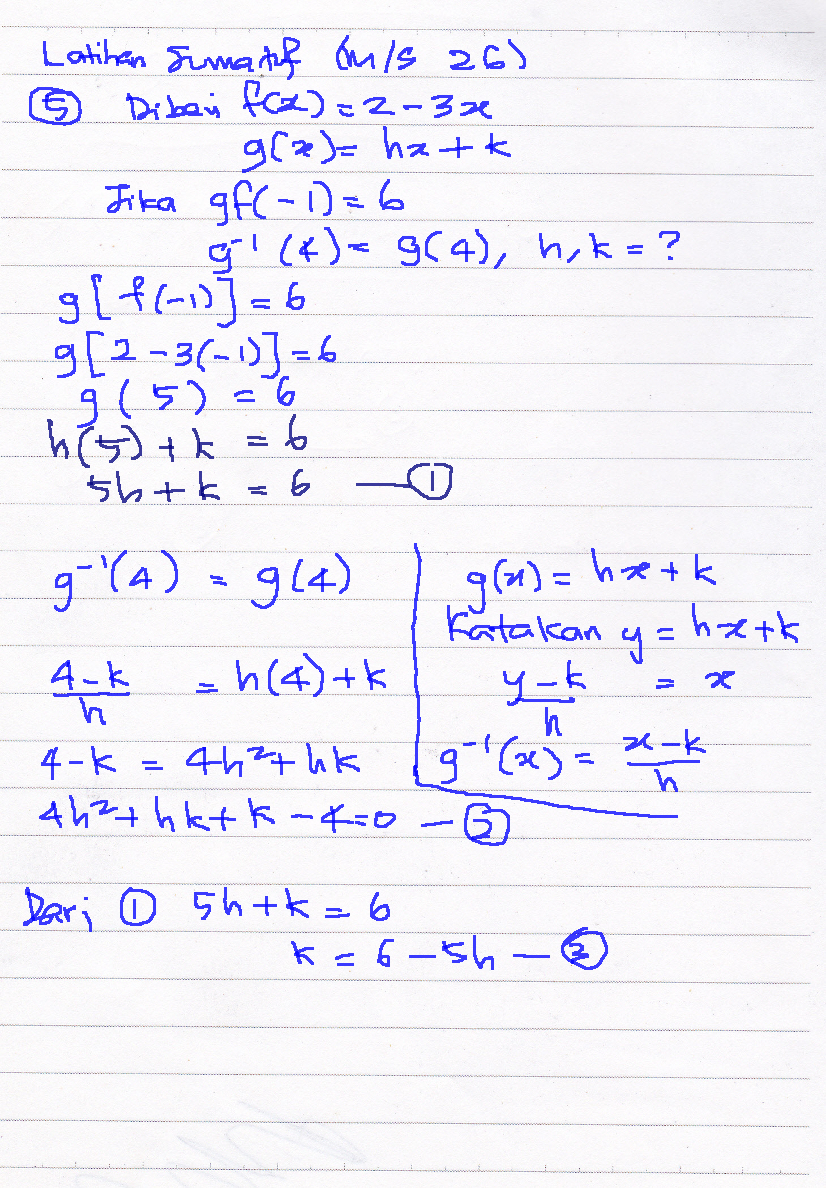 Latihan Sumatif (m/s 26)
⑤ Diberi f(x) = 2 - 3x
g(x) = hx + k
Jika gf(-1) = 6
g⁻¹(4) = g(4), h, k = ?
g[f(-1)] = 6
g[2 - 3(-1)] = 6
g(5) = 6
h(5) + k = 6
5h + k = 6 — ①
g⁻¹(4) = g(4)
(4-k)/h = h(4) + k
4 - k = 4h² + hk
4h² + hk + k - 4 = 0 — ②
g(x) = hx + k
Katakan y = hx + k
(y-k)/h = x
g⁻¹(x) = (x-k)/h
Dari ① 5h + k = 6
k = 6 - 5h — ③